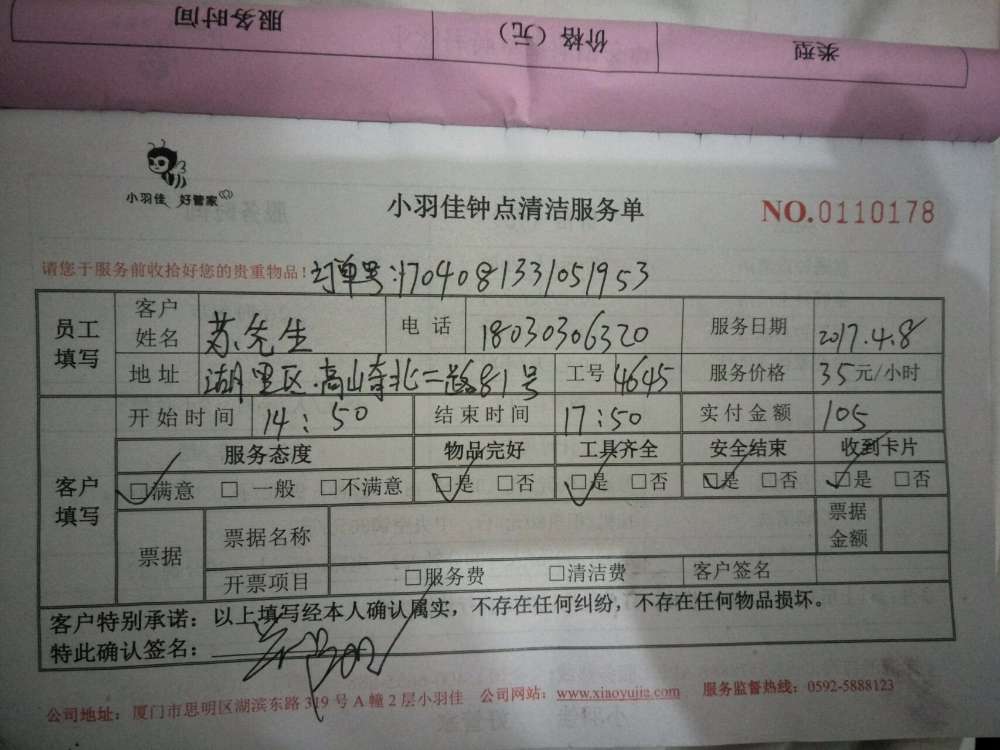 服务时间 价格（元） 类型
小羽佳 好管家
小羽佳钟点清洁服务单 NO.0110178
请您于服务前收拾好您的贵重物品! 订单号:1704081331051953
员工填写 客户姓名 苏先生 电话 18030306320 服务日期 2017.4.8
地址 湖里区.高山寺北二路81号 工号 4645 服务价格 35元/小时
客户填写 开始时间 14:50 结束时间 17:50 实付金额 105
服务态度 物品完好 工具齐全 安全结束 收到卡片
□满意 □一般 □不满意 □是 □否 □是 □否 □是 □否 □是 □否
票据 票据名称 票据金额
开票项目 □服务费 □清洁费 客户签名
客户特别承诺：以上填写经本人确认属实，不存在任何纠纷，不存在任何物品损坏。
特此确认签名：
公司地址：厦门市思明区湖滨东路319号A幢2层小羽佳 公司网站：www.xiaoyujie.com 服务监督热线：0592-5888123